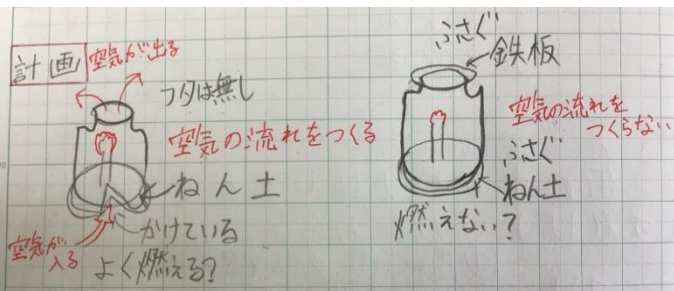 計画
空気が出る
フタは無し
空気の流れをつくる
ねん土
かけている
空気が
入る
よく燃える?
ふさぐ
鉄板
空気の流れを
つくらない
ふさぐ
ねん土
燃えない?